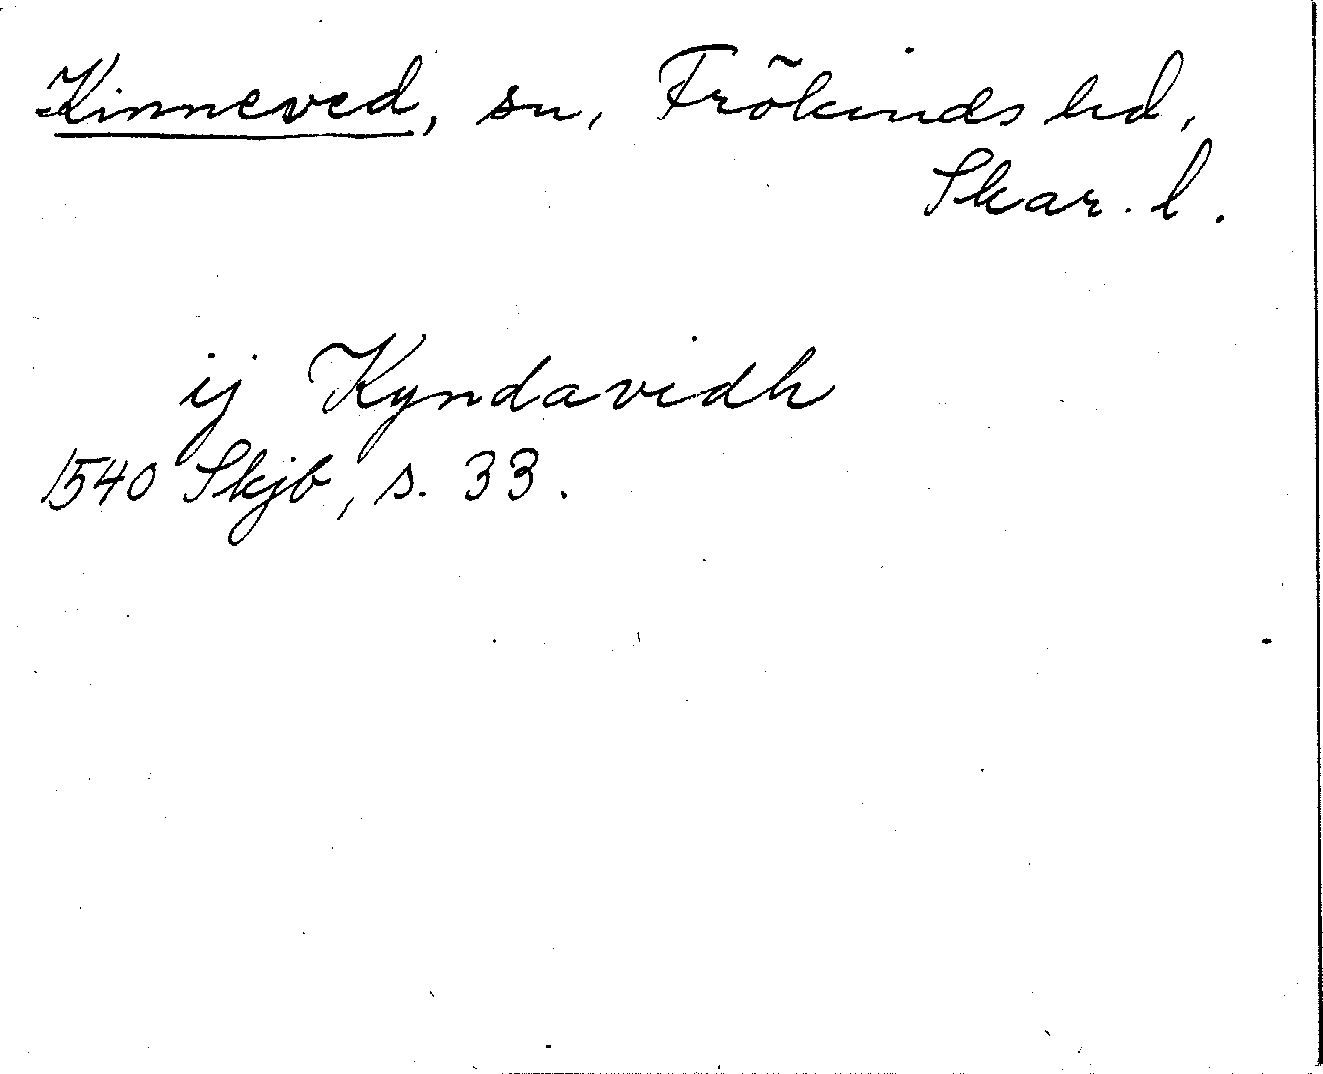 Kinneved, sn, Frökinds hd,
Skar. l.
ij Kyndavidh
1540 Skjb, s. 33.